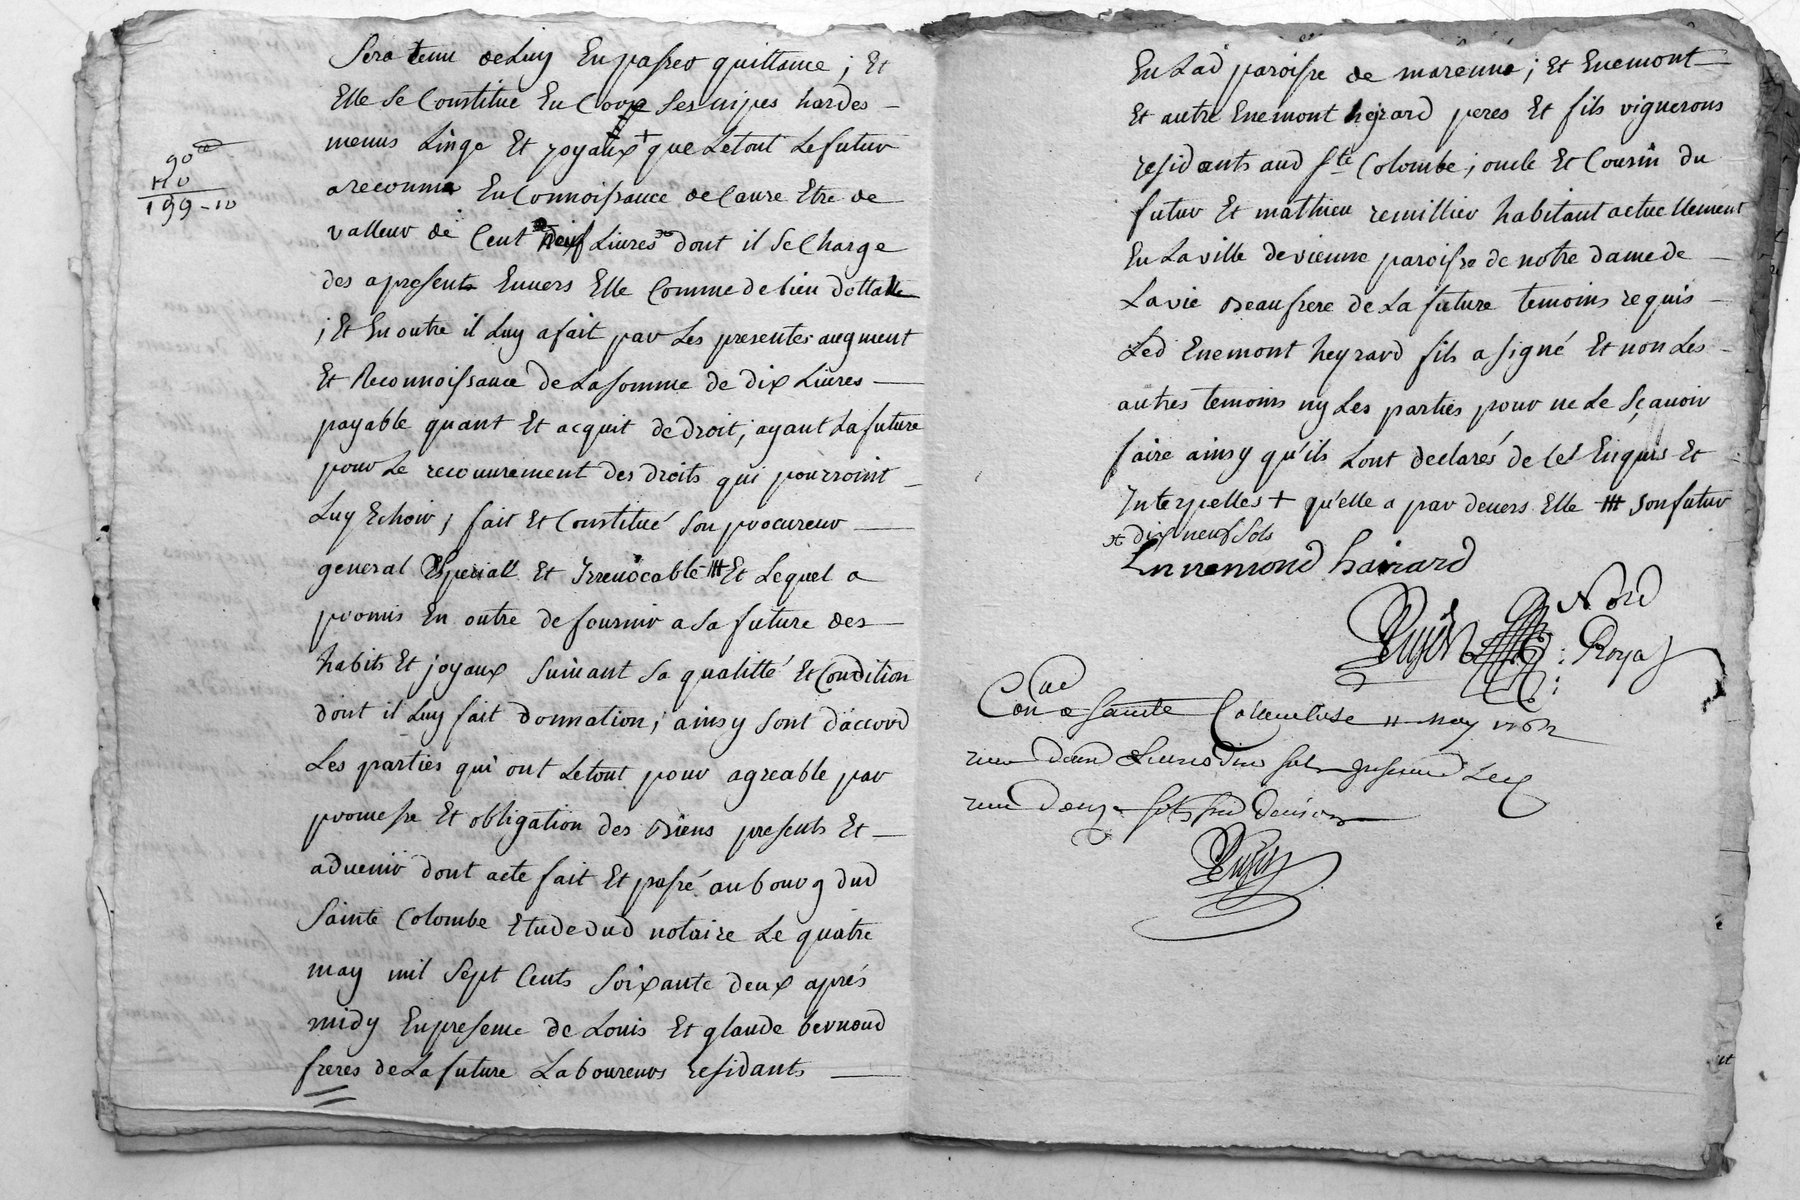 90
199-10
Sera tenu de Luy En passer quittance ; Et
Elle Se Constitue En Coore Ses nipes hardes
menus Linge Et joyaux + que Letout Le futur
a reconnu En Connoissance de Cause Etre de
valleur de Cent neuf Livres dont il Se Charge
des apresent Envers Elle Comme de bien dottalle
; Et En outre il Luy a fait par Les presentes augment
Et Reconnoissance de La somme de dix Livres
payable quant Et acquit de droit ; ayant La future
pour Le recouvrement des droits qui pourroint
Luy Echoir ; fait Et Constitué Son procureur
general Especiall Et Irrevocable Et Lequel a
promis En outre de fournir a Sa future des
habits Et joyaux Suivant Sa qualitté Et Condition
dont il Luy fait donnation ; ainsy Sont d'accord
Les parties qui ont Letout pour agreable par
promesse Et obligation des Biens presents Et
advenir dont acte fait Et passé au bourg dud
Sainte Colombe Etude dud notaire Le quatre
may mil Sept Cents Soixante deux aprés
midy En presence de Louis Et glaude bernoud
freres de La future Laboureurs residants
En Lad paroisse de marenne ; Et Enemont
Et autre Enemont hejrard peres Et fils vignerons
residents aud Ste Colombe ; oncle Et Cousin du
futur Et mathieu remillier habitant actuellement
En La ville de vienne paroisse de notre dame de
La vie Beaufrere de La future temoins requis
Led Enemont heyrard fils a signé Et non Les
autres temoins ny Les parties pour ne Le Sçavoir
faire ainsy qu'ils Lont declarés de Ce Enquis Et
Interpelles + qu'elle a par devers Elle Son futur
dix neuf Sols
Ennemond hairard
Nore
Royal
Con a Sainte Colombe 11 may 1762